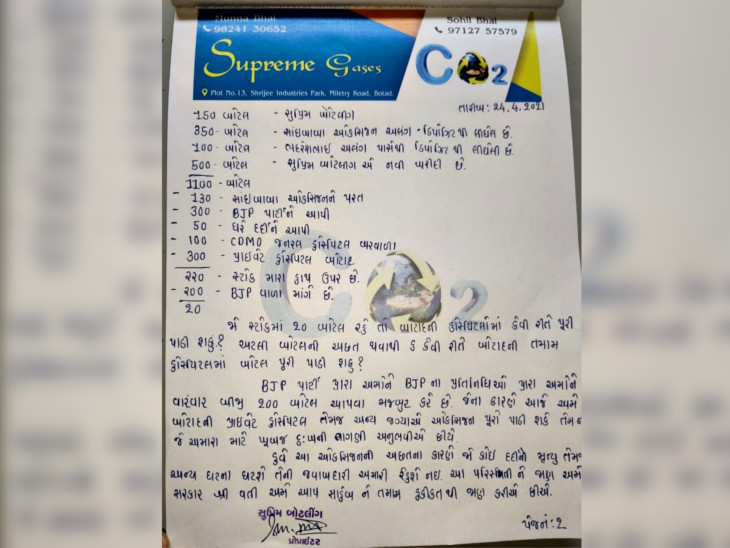 Munna Bhai
98241 30652
Sohil Bhai
97127 57579
Supreme Gases
CO2
Plot No.13, Shrijee Industries Park, Miletry Road, Botad.
તારીખ: 24.4.2021
150 બોટલ - સુપ્રિમ બોટલીંગ
350 - બોટલ - સાંઇબાબા ઓક્સિજન અલંગ - ડિપોઝિટ થી લીધેલ છે.
100 - બોટલ - અલંગ પાસેથી ડિપોઝિટ થી લીધેલી છે.
500 - બોટલ - સુપ્રિમ બોટલીંગ એ નવી ખરીદી છે.
1100 - બોટલ
- 130 - સાંઇબાબા ઓક્સિજનને પરત
- 300 - BJP પાર્ટીને આપી
- 50 - ઘરે દર્દીને આપી
- 100 - CDMO જનરલ હોસ્પિટલ બરવાળા
- 300 - પ્રાઇવેટ હોસ્પિટલ બોટાદ
220 - સ્ટોક મારા હાથ ઉપર છે.
- 200 - BJP વાળા માંગે છે.
20
જો સ્ટોકમાં 20 બોટલ રહે તો બોટાદની હોસ્પિટલોમાં કેવી રીતે પુરી
પાડી શકું? એટલી બોટલની અછત થવાથી હું કેવી રીતે બોટાદની તમામ
હોસ્પિટલમાં બોટલ પુરી પાડી શકુ?
BJP પાર્ટી દ્વારા અમોને BJP ના પ્રતિનિધિઓ દ્વારા અમોને
વારંવાર બીજી 200 બોટલ આપવા મજબુર કરે છે. જેના કારણે આજે અમે
બોટાદની પ્રાઇવેટ હોસ્પિટલ તેમજ અન્ય જગ્યાએ ઓક્સિજન પુરો પાડી શકે તેમ ન
જે અમારા માટે ખુબજ દુ:ખની લાગણી અનુભવીએ છીએ.
હવે આ ઓક્સિજનની અછતના કારણે જો કોઇ દર્દીનો મૃત્યુ તેમજ
અન્ય ઘટના ઘટશે તેની જવાબદારી અમારી રહેશે નઇ. આ પરિસ્થિતી ને જાણ અમે
સરકાર શ્રી વતી અમે આપ સાહેબ ને તમામ હકીકત થી જાણ કરીએ છીએ.
સુપ્રિમ બોટલીંગ
પ્રોપ્રાઇટર
પેજનં: 2